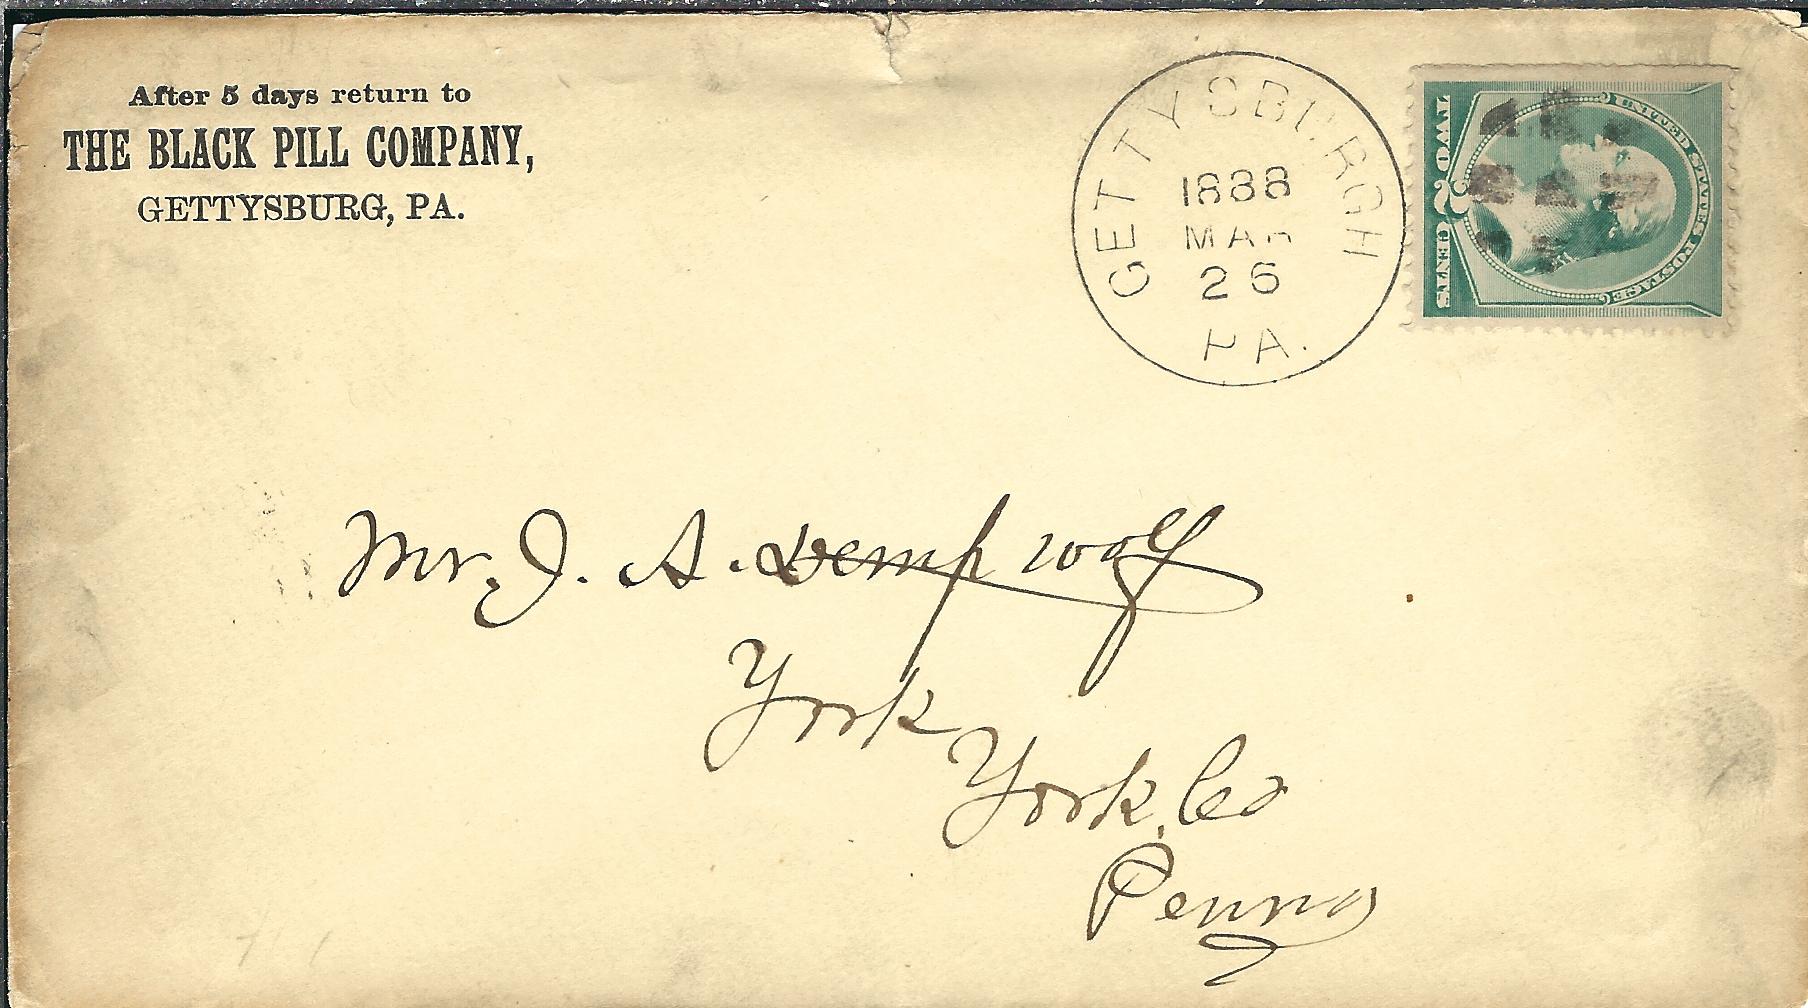 After 5 days return to
THE BLACK PILL COMPANY,
GETTYSBURG, PA.
GETTYSBURGH
1888
MAR
26
PA.
UNITED STATES POSTAGE
TWO 2 CENTS
Mr. J. A. Dempwolf
York
York. Co
Penna